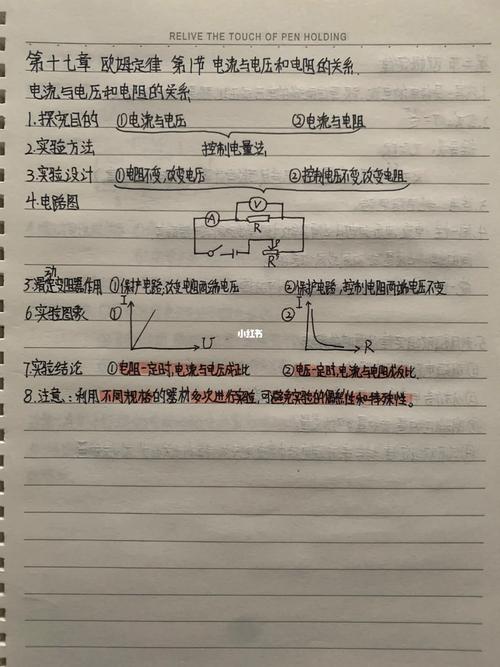 RELIVE THE TOUCH OF PEN HOLDING
第十七章 欧姆定律 第1节 电流与电压和电阻的关系.
电流与电压和电阻的关系
1.探究目的 ①电流与电压 ②电流与电阻
2.实验方法 控制变量法
3.实验设计 ①电阻不变,改变电压 ②控制电压不变,改变电阻
4.电路图
V
A
R
P
R'
5.滑动变阻器作用 ①保护电路,改变电阻两端电压 ②保护电路,控制电阻两端电压不变
6.实验图象 ① I U ② I R
小红书
7.实验结论 ①电阻一定时,电流与电压成正比 ②电压一定时,电流与电阻成反比.
8.注意:利用不同规格的器材多次进行实验,可避免实验的偶然性和特殊性。